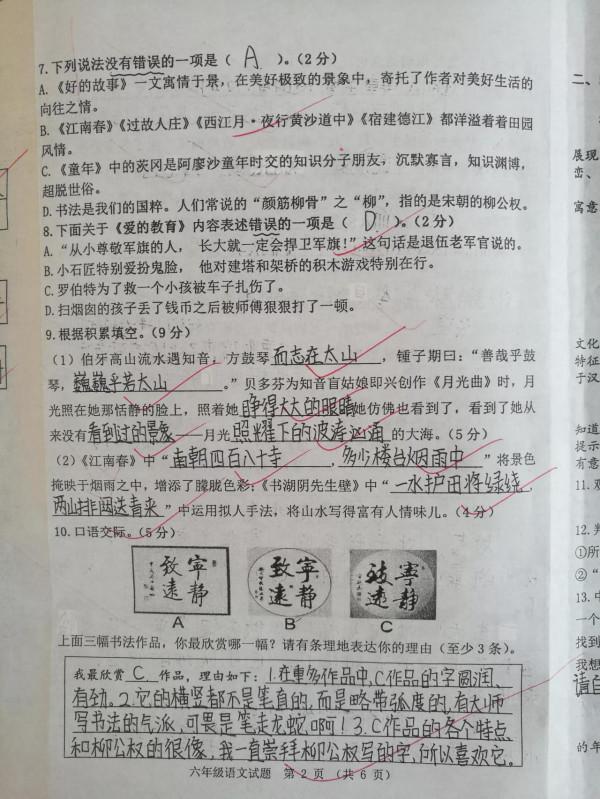 7.下列说法没有错误的一项是（ A ）。（2分）
A.《好的故事》一文寓情于景，在美好极致的景象中，寄托了作者对美好生活的
向往之情。
B.《江南春》《过故人庄》《西江月·夜行黄沙道中》《宿建德江》都洋溢着着田园
风情。
C.《童年》中的茨冈是阿廖沙童年时交的知识分子朋友，沉默寡言，知识渊博，
超脱世俗。
D.书法是我们的国粹。人们常说的“颜筋柳骨”之“柳”，指的是宋朝的柳公权。
8.下面关于《爱的教育》内容表述错误的一项是（ D ）。（2分）
A.“从小尊敬军旗的人， 长大就一定会捍卫军旗！”这句话是退伍老军官说的。
B.小石匠特别爱扮鬼脸， 他对建塔和架桥的积木游戏特别在行。
C.罗伯特为了救一个小孩被车子扎伤了。
D.扫烟囱的孩子丢了钱币之后被师傅狠狠打了一顿。
9.根据积累填空。（9分）
（1）伯牙高山流水遇知音，方鼓琴而志在太山，锺子期曰：“善哉乎鼓
琴，巍巍乎若太山。”贝多芬为知音盲姑娘即兴创作《月光曲》时，月
光照在她那恬静的脸上，照着她睁得大大的眼睛她仿佛也看到了，看到了她从
来没有看到过的景像——月光照耀下的波涛汹涌的大海。（5分）
（2）《江南春》中“南朝四百八十寺，多少楼台烟雨中”将景色
掩映于烟雨之中，增添了朦胧色彩；《书湖阴先生壁》中“一水护田将绿绕，
两山排闼送青来”中运用拟人手法，将山水写得富有人情味儿。（4分）
10.口语交际。（5分）
宁静致远
宁静致远
宁静致远
A B C
上面三幅书法作品，你最欣赏哪一幅？请有条理地表达你的理由（至少3条）。
我最欣赏 C 作品，理由如下：1.在重多作品中，C作品的字圆润、
有劲。2.它的横竖都不是笔直的，而是略带弧度的，有大师
写书法的气派，可畏是笔走龙蛇啊！3.C作品的各个特点
和柳公权的很像，我一直崇拜柳公权写的字，所以喜欢它。
六年级语文试题 第2页（共6页）
二、
展现
峦、
寓意
文化
特征
于汉
知道
提示
有意
11.观
12.判
①所
②“
13.中
一个
找出
我想
请自
的年